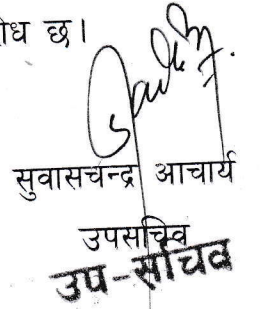 ोध छ।
सुवासचन्द्र आचार्य
उपसचिव
उप-सचिव